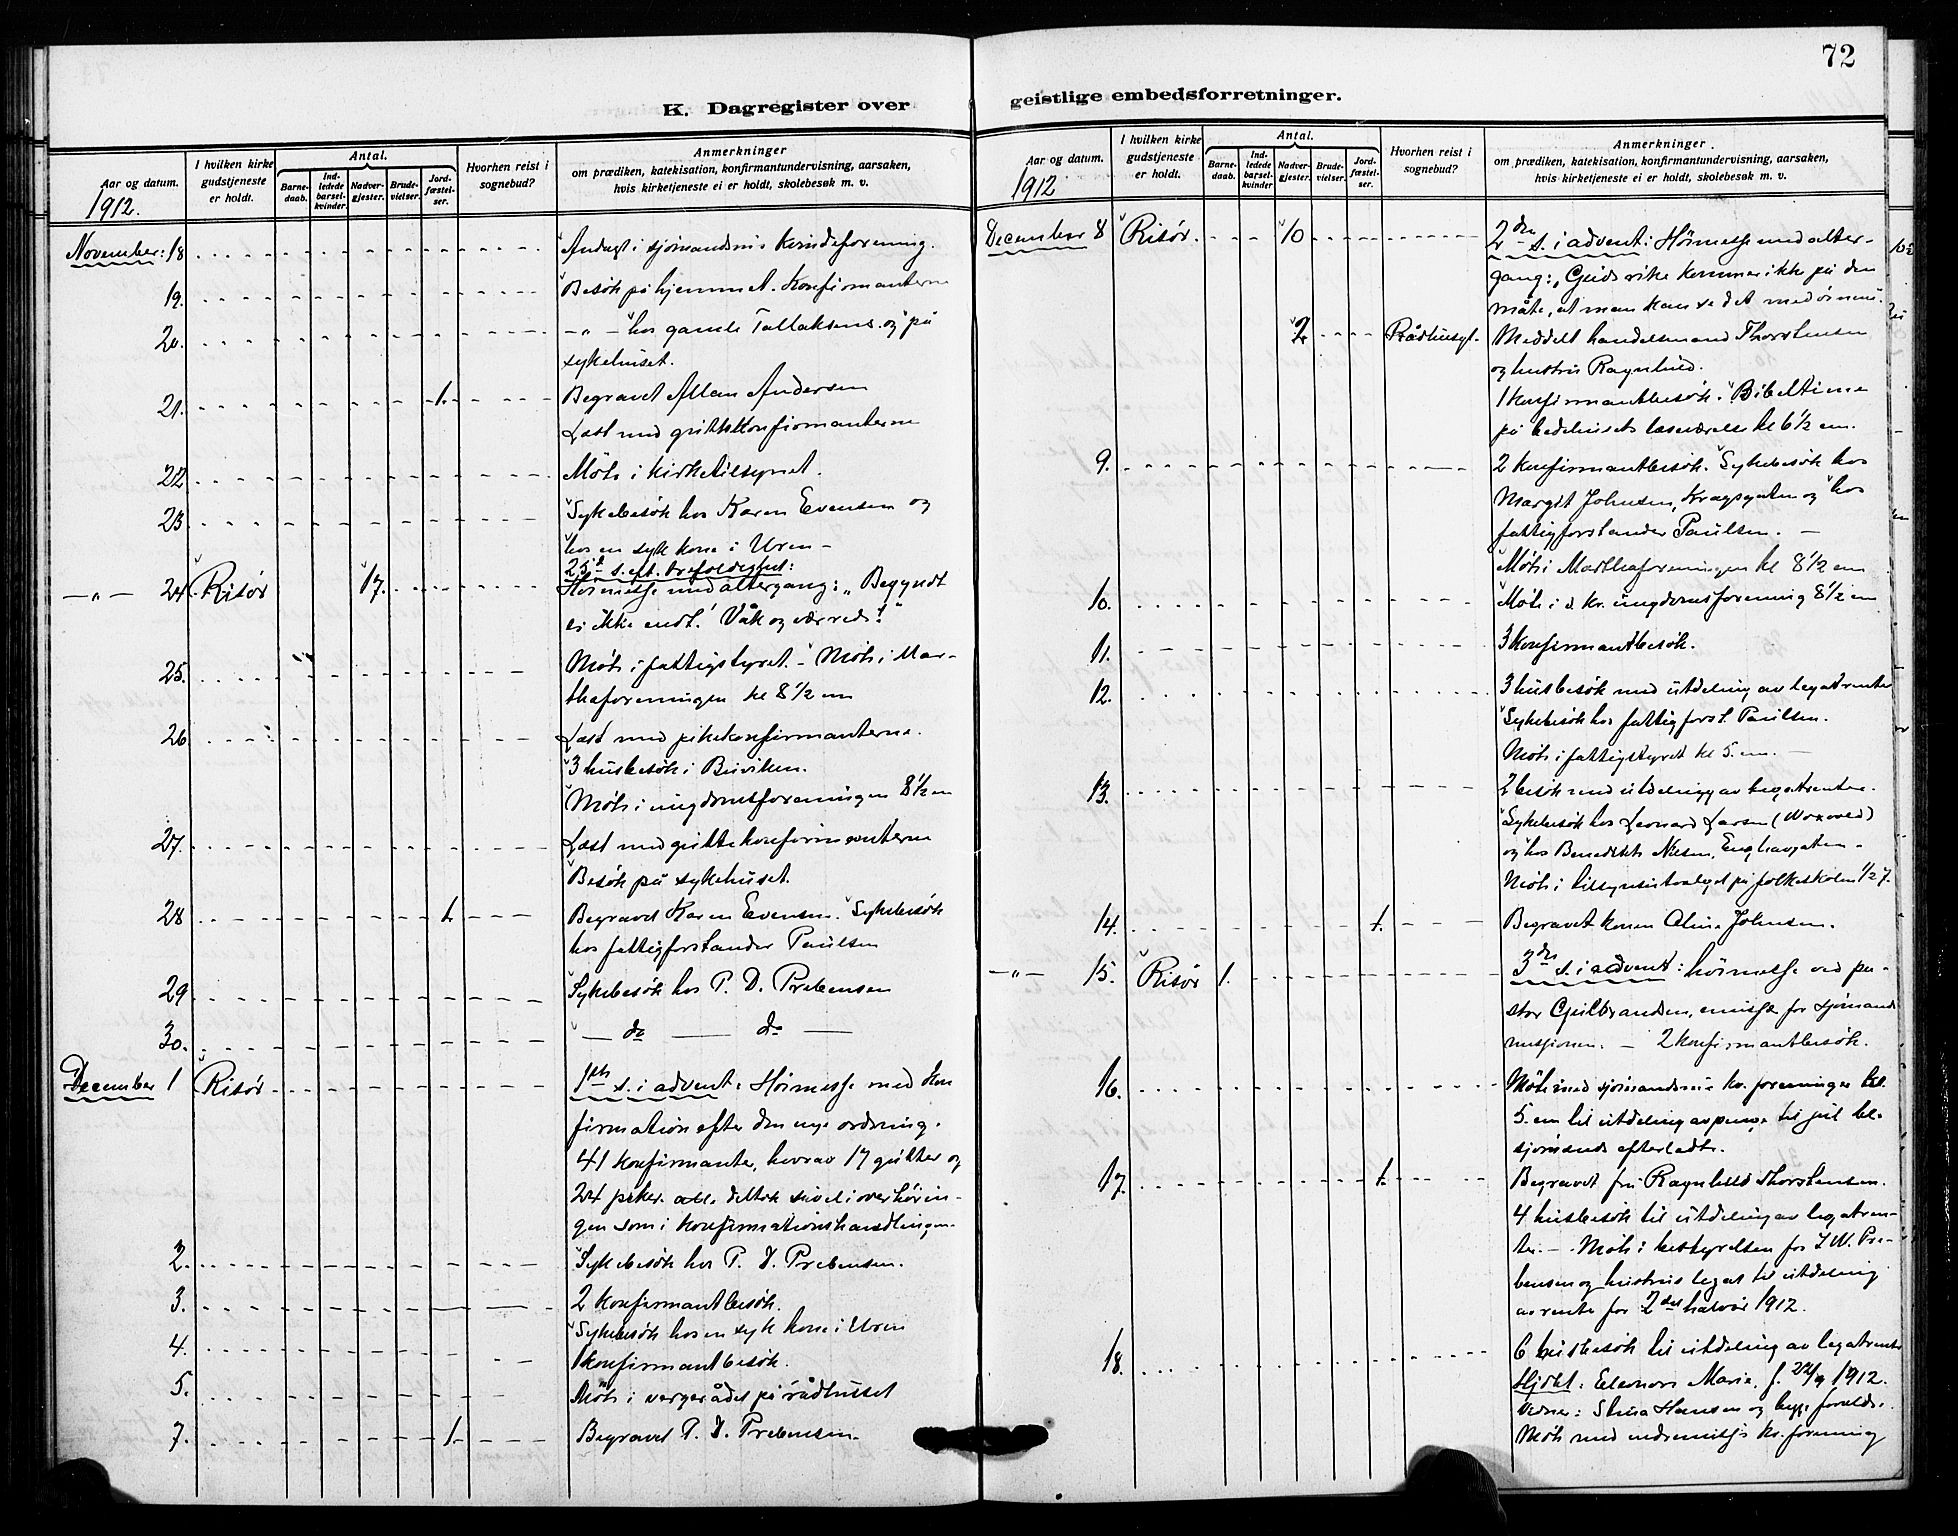 72
K. Dagregister over
geistlige embedsforretninger.
Aar og datum.
1912.
I hvilken kirke gudstjeneste er holdt.
Antal.
Barnedaab.
Indledede barselkvinder.
Nadvergjester.
Brudevielser.
Jordfæstelser.
Hvorhen reist i sognebud?
Anmerkninger
om prædiken, katekisation, konfirmantundervisning, aarsaken,
hvis kirketjeneste ei er holdt, skolebesøk m. v.
November: 18 Andagt i sjømandsmis. kvindeforening.
19. Besøk på hjemmet. Konfirmanterne
20. — „ — hos gamle Tallaksens og på
sykehuset.
21. 1. Begravet Allan Andersen
Læst med guttekonfirmanterne
22 Møte i kirketilsynet.
23 Sykebesøk hos Karen Evensen og
hos en syk kone i Uren –
25de s. eft. trefoldighed:
— „ — 24. Risör 17. Høimesse med altergang: „Begyndt
er ikke endt! Våk og vær rede!“
25. Møte i fattigstyret. – Møte i Mar-
thaforeningen kl 8 1/2 em
26 Læst med pikekonfirmanterne.
3 husbesøk i Buviken.
Møte i ungdomsforeningen 8 1/2 em
27. Læst med guttekonfirmanterne
Besøk på sykehuset.
28 1. Begravet Karen Evensen. Sykebesøk
hos fattigforstander Paulsen
29 Sykebesøk hos P. D. Prebensen
30. — do — do —
December 1 Risör 1ste s. i advent: Høimesse med kon
firmation efter den nye ordning.
41 konfirmanter, hvorav 17 gutter og
24 piker. alle deltok såvel i overhørin-
gen som i konfirmationshandlingen.
2. Sykebesøk hos P. D. Prebensen.
3. 2 konfirmantbesøk.
4. Sykebesøk hos en syk kone i Uren
1 konfirmantbesøk.
5. Møte i vergerådet på rådhuset
7. 1. Begravet P. D. Prebensen.
Aar og datum.
1912
I hvilken kirke gudstjeneste er holdt.
Antal.
Barnedaab.
Indledede barselkvinder
Nadvergjester.
Brudevielser.
Jordfæstelser.
Hvorhen reist i sognebud?
Anmerkninger.
om prædiken, katekisation, konfirmantundervisning, aarsaken,
hvis kirketjeneste ei er holdt, skolebesøk m. v.
December 8 Risör. 10 2den s. i advent: Høimesse med alter-
gang: „Guds rike kommer ikke på den
måte, at man kan se det med øinene.
2 Rådhusgt. Meddelt handelsmand Thorstensen
og hustru Ragnhild.
1 konfirmantbesøk. Bibeltime
på bedehusets læseværelse kl 6 1/2 em.
9. 2 konfirmantbesøk. Sykebesøk hos
Margit Johnsen, Kragsgaten og hos
fattigforstander Paulsen. –
Møte i Marthaforeningen kl 8 1/2 em
10. Møte i d. kr. ungdomsforening 8 1/2 em
11. 3 konfirmantbesøk.
12. 3 husbesøk med utdeling av legatrenter
Sykebesøk hos fattigforst. Paulsen.
Møte i fattigstyret kl 5. em. –
13. 2 besøk med utdeling av legatrenter.
Sykebesøk hos Leonard Larsen
og hos Benedikte Nilsen, Enghavgaten –
Møte i tilsynsutvalget på folkeskolen 1/2 7.
14. 1. Begravet konen Oline Johnsen.
— „ — 15. Risör 1. 3die s. i advent: høimesse ved pa-
stor Gulbrandsen, emiss. for sjømands
missionen. – 2 konfirmantbesøk.
16. Møte med sjømandsmis. kv. foreninger kl.
5. em til utdeling av penge til jul bl.
sjømænds efterladte.
17. 1. Begravet fru Ragnhild Thorstensen.
4 husbesøk til utdeling av legatren-
ter. – Møte i bestyrelsen for I. W. Pre-
bensen og hustrus legat til utdeling
av rente for 2det halvår 1912.
18. 6 husbesøk til utdeling av legatrente
Hjdbt: Eleonore Marie, f. 22/9 1912.
Vidner: Stina Hansen og begge foreldre.
Møte med indremiss. kv. forening